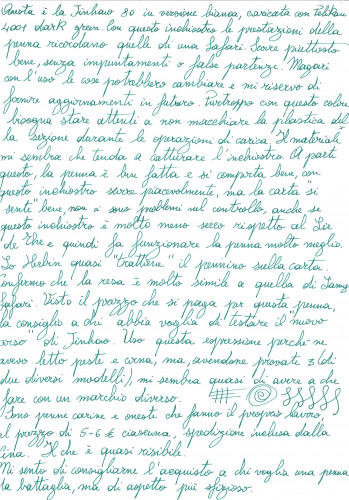 Questa è la Jinhao 80 in versione bianca, caricata con Pelikan
4001 dark green. Con questo inchiostro le prestazioni della
penna ricordano quelle di una Safari. Scorre piuttosto
bene, senza impuntamenti o false partenze. Magari
con l'uso le cose potrebbero cambiare e mi riservo di
fornire aggiornamenti in futuro. Purtroppo con questo colore
bisogna stare attenti a non macchiare la plastica del
la sezione durante le operazioni di carica. Il materiale
mi sembra che tenda a catturare l'inchiostro. A parte
questo, la penna è ben fatta e si comporta bene, con
questo inchiostro scorre piacevolmente, ma la carta si
"sente" bene, non ci sono problemi nel controllo, anche se
questo inchiostro è molto meno secco rispetto al Lie
de Thé e quindi fa funzionare la penna molto meglio.
Lo Herbin quasi "trattiene" il pennino sulla carta.
Confermo che la resa è molto simile a quella di Lamy
Safari. Visto il prezzo che si paga per questa penna,
la consiglio a chi abbia voglia di testare il "nuovo
corso" di Jinhao. Uso questa espressione perché ne
avevo letto peste e corna, ma, avendone provate 3 (di
due diversi modelli), mi sembra quasi di avere a che
fare con un marchio diverso.
Sono penne carine e oneste che fanno il proprio lavoro,
al prezzo di 5-6 € ciascuna, spedizione inclusa dalla
Cina. Il che è quasi risibile.
Mi sento di consigliarne l'acquisto a chi voglia una penna
da battaglia, ma di aspetto più sfizioso.